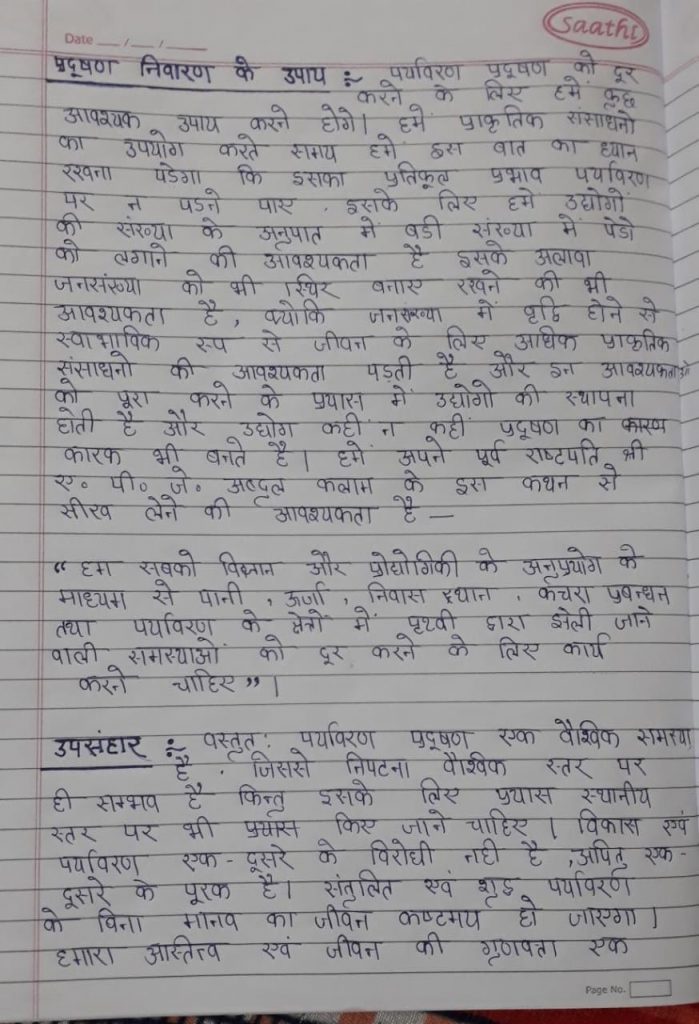 Saathi
Date __/__/____
प्रदूषण निवारण के उपाय :- पर्यावरण प्रदूषण को दूर
करने के लिए हमें कुछ
आवश्यक उपाय करने होंगे। हमें प्राकृतिक संसाधनो
का उपयोग करते समय हमें इस बात का ध्यान
रखना पडेगा कि इसका प्रतिकूल प्रभाव पर्यावरण
पर न पडने पाए . इसके लिए हमे उद्योगों
की संख्या के अनुपात में बडी संख्या में पेडो
को लगाने की आवश्यकता है इसके अलावा
जनसंख्या को भी स्थिर बनाए रखने की भी
आवश्यकता है, क्योकि जनसंख्या में वृद्धि होने से
स्वाभाविक रूप से जीवन के लिए अधिक प्राकृतिक
संसाधनो की आवश्यकता पड़ती है और इन आवश्यकताओ
को पूरा करने के प्रयास में उद्योगो की स्थापना
होती है और उद्योग कही न कही प्रदूषण का कारण
कारक भी बनते है। हमें अपने पूर्व राष्टपति भी
ए. पी. जे. अब्दुल कलाम के इस कथन से
सीख लेने की आवश्यकता है —
“ हम सबको विज्ञान और प्रोद्योगिकी के अनुप्रयोग के
माध्यम से पानी , ऊर्जा , निवास स्थान , कचरा प्रबन्धन
तथा पर्यावरण के क्षेत्रो में पृथ्वी द्वारा झेली जाने
वाली समस्याओं को दूर करने के लिए कार्य
करने चाहिए ”।
उपसंहार :- वस्तुत: पर्यावरण प्रदूषण एक वैश्विक समस्या
है . जिससे निपटना वैश्विक स्तर पर
ही सम्भव है किन्तु इसके लिए प्रयास स्थानीय
स्तर पर भी प्रयास किए जाने चाहिए । विकास एवं
पर्यावरण एक-दूसरे के विरोधी नही है ,अपितु एक-
दूसरे के पूरक है। संतुलित एवं शुद्ध पर्यावरण
के बिना मानव का जीवन कष्टमय हो जाएगा।
हमारा अस्तित्व एवं जीवन की गुणवत्ता एक
Page No.